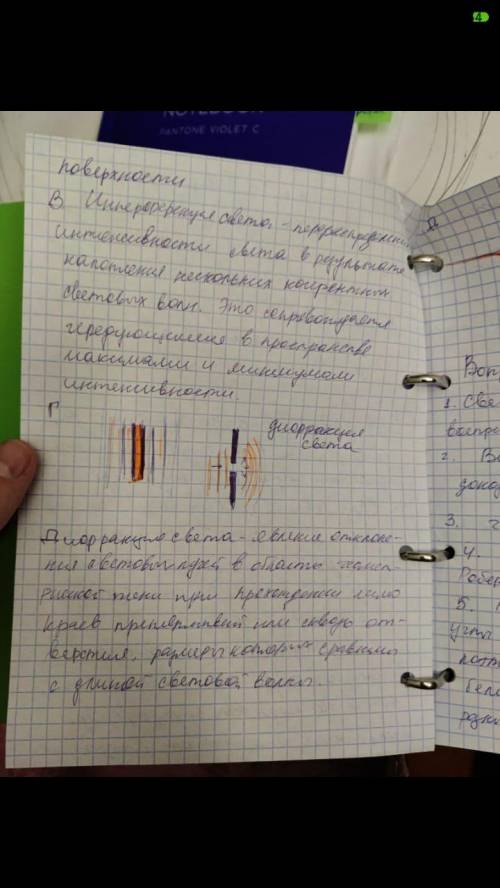 4
NOTEBOOK
PANTONE VIOLET C
поверхности
В Интерференция света - перераспределение
интенсивности света в результате
наложения нескольких когерентных
световых волн. Это сопровождается
чередующимися в пространстве
максимами и минимумами
интенсивности.
Г
Дифракция
света
Дифракция света - явление отклоне-
ния световых лучей в область геомет-
рической тени при прохождении мимо
краев препятствий или сквозь от-
верстия, размеры которых сравнимы
с длиной световой волны.
Воп
1. Све
2. В
3.
4.
Робер
5.